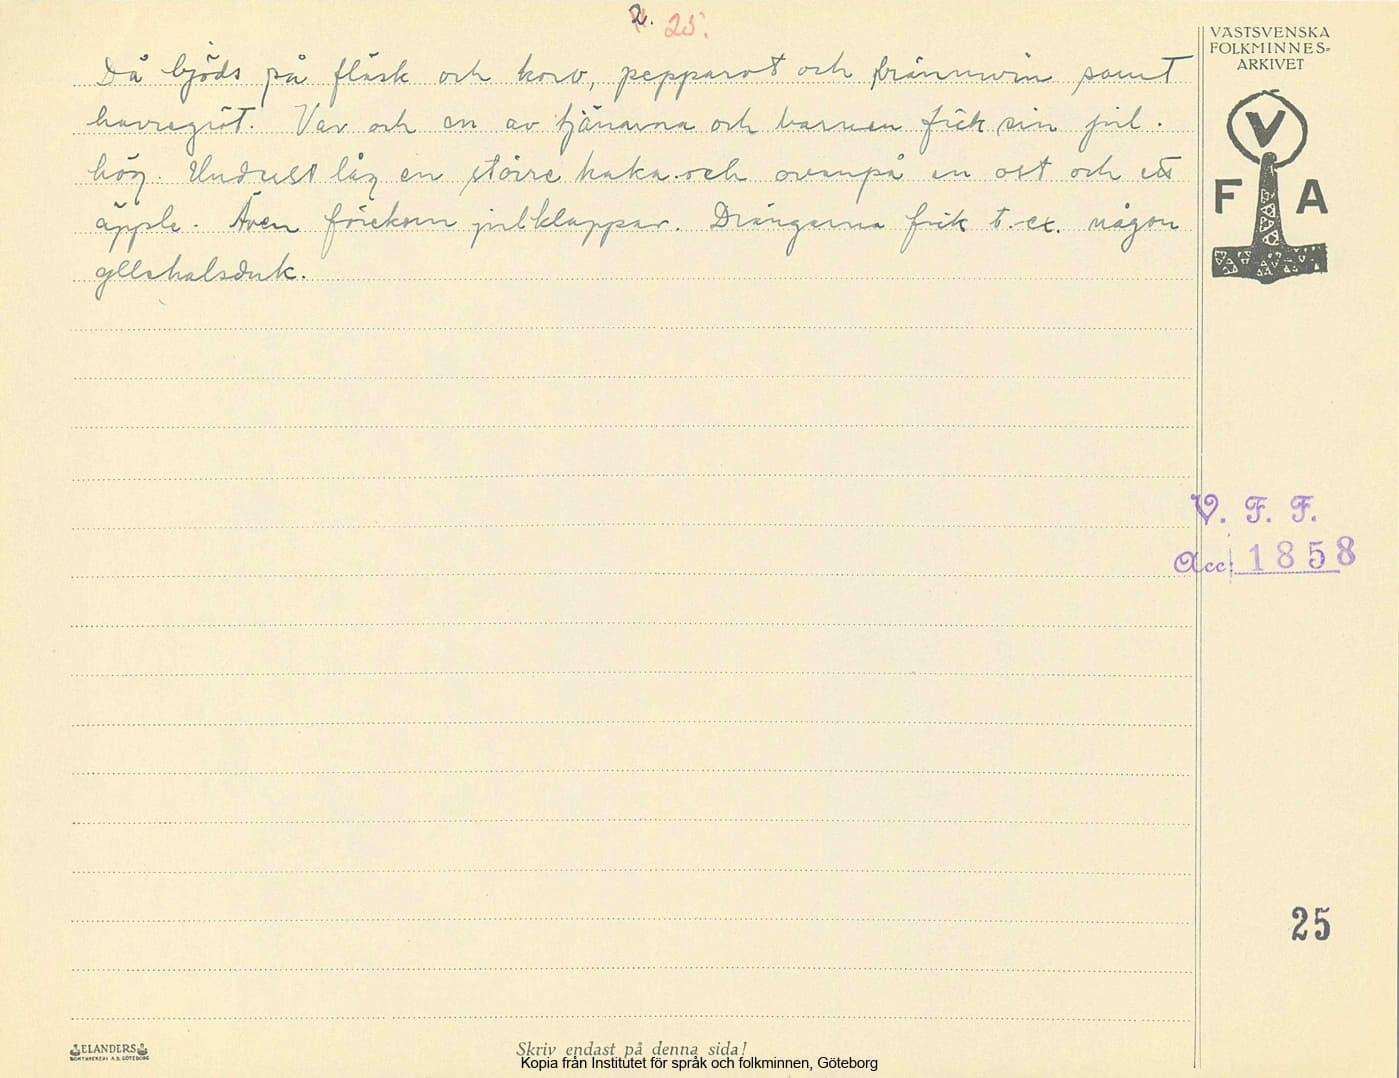 2. 25.
Då bjöds på fläsk och korv, pepparot och brännvin samt
havregröt. Var och en av tjänarna och barnen fick sin jul-
hög. Underst låg en större kaka och ovanpå en ost och ett
äpple. Även förekom julklappar. Drängarna fick t.ex. någon
yllehalsduk.
VÄSTSVENSKA
FOLKMINNES-
ARKIVET
V
F A
V. F. F.
Acc: 1858
25
ELANDERS
BOKTRYCKERI A.B. GÖTEBORG
Skriv endast på denna sida!
Kopia från Institutet för språk och folkminnen, Göteborg